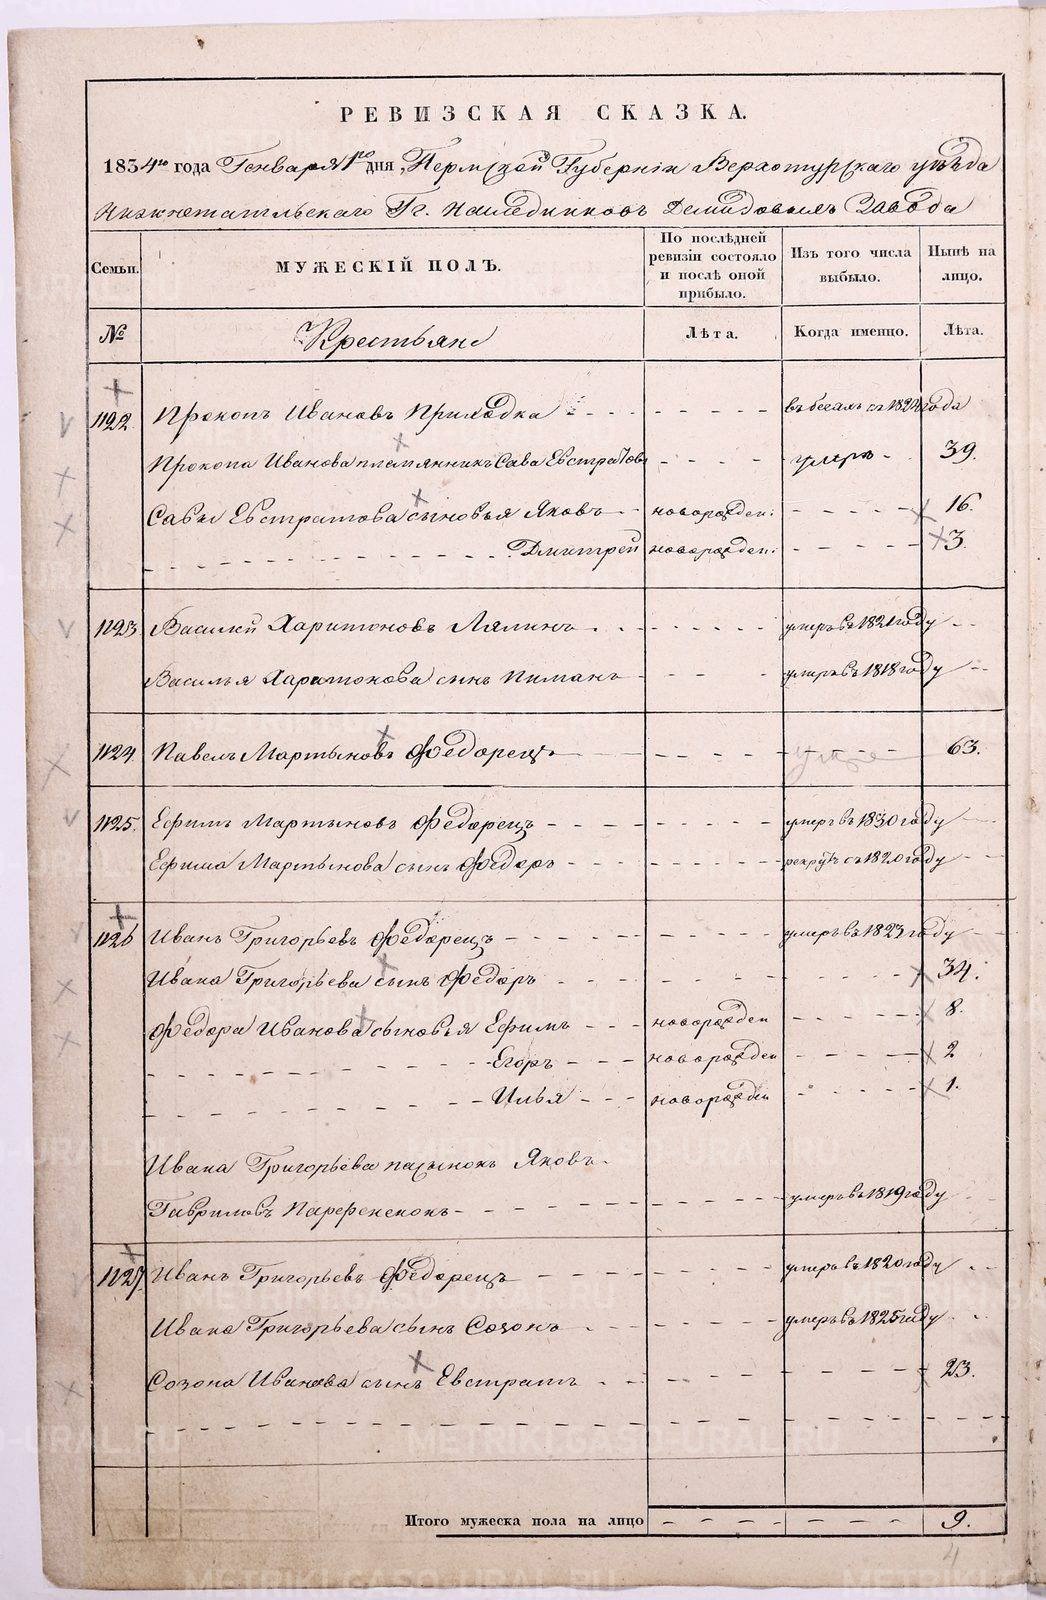 РЕВИЗСКАЯ СКАЗКА.
1834го года Генваря 1го дня, Пермской Губернiи Верхотурскаго уѣзда
Нижнетагильскаго Гг. Наследниковъ Демидовыхъ Завода
Семьи. МУЖЕСКIЙ ПОЛЪ. По послѣдней ревизiи состояло и послѣ оной прибыло. Изъ того числа выбыло. Нынѣ на лицо.
№ Крестьяне Лѣта. Когда именно. Лѣта.
1122 Прокопъ Ивановъ Приходка въ бегахъ съ 1824 года
Прокопа Иванова племянникъ Сава Евстратовъ умеръ 39.
Савы Евстратова сыновья Яковъ новорожден: 16.
Дмитрей новорожден: 3.
1123 Василий Харитоновъ Лялинъ умеръ въ 1821 году
Василья Харитонова сынъ Пиманъ умеръ въ 1818 году
1124 Павелъ Мартыновъ Федорецъ 63.
1125. Ефимъ Мартыновъ Федорецъ умеръ въ 1830 году
Ефима Мартынова сынъ Федоръ рекрутъ съ 1820 году
1126 Иванъ Григорьевъ Федорецъ умеръ въ 1823 году
Ивана Григорьева сынъ Федоръ 34.
Федора Иванова сыновья Ефимъ новорожден 8.
Егоръ новорожден 2
Илья новорожден 1.
Ивана Григорьева пасынокъ Яковъ
Гавриловъ Парфененокъ умеръ въ 1819 году
1127 Иванъ Григорьевъ Федорецъ умеръ въ 1820 году
Ивана Григорьева сынъ Созонъ умеръ въ 1825 году
Созона Иванова сынъ Евстратъ 23.
Итого мужеска пола на лицо 9.
4
METRIKI.GASO-URAL.RU